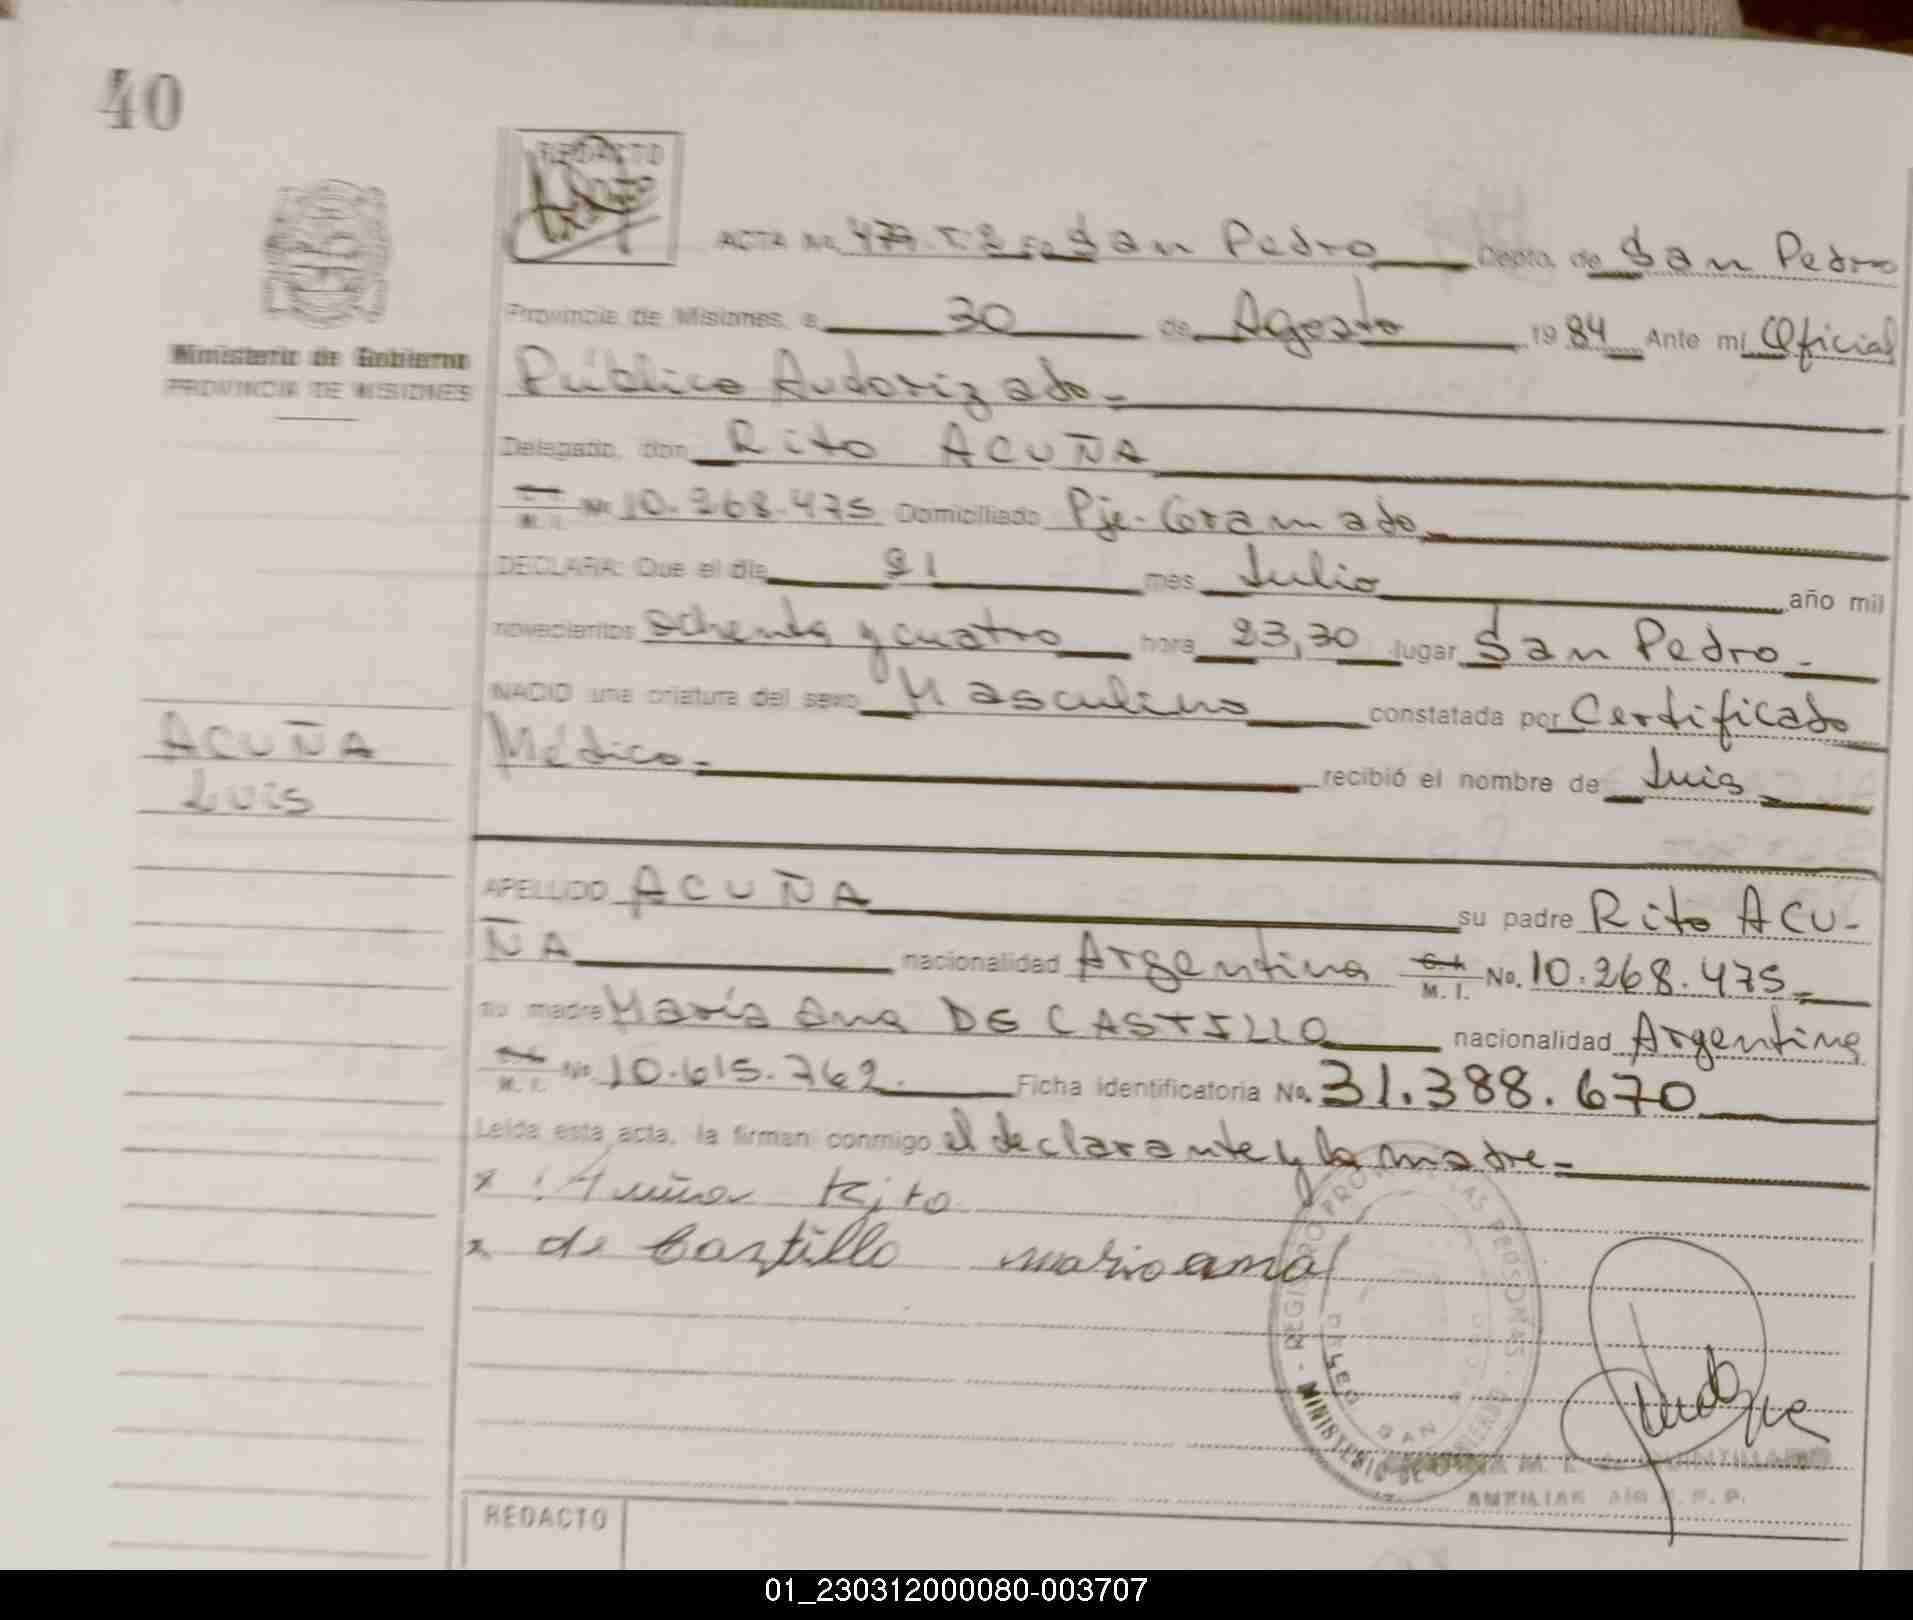 40
REDACTO
ACTA No. 479. T. 2 En San Pedro Depto. de San Pedro
Provincia de Misiones, a 30 de Agosto 1984 Ante mí Oficial
Ministerio de Gobierno
PROVINCIA DE MISIONES
Público Autorizado.-
Delegado, don Rito ACUÑA
M. I. No. 10.268.475 Domiciliado Pje. Gramado
DECLARA: Que el día 21 mes Julio año mil
novecientos ochenta y cuatro hora 23,30 lugar San Pedro.-
NACIO una criatura del sexo Masculino constatada por Certificado
Médico.- recibió el nombre de Luis
ACUÑA
Luis
APELLIDO ACUÑA su padre Rito ACU-
ÑA nacionalidad Argentina C.I. M. I. No. 10.268.475
su madre María Ana DE CASTILLO nacionalidad Argentina
M. I. No. 10.615.762. Ficha identificatoria No. 31.388.670
Leída esta acta, la firman conmigo el declarante y la madre=
x Acuña Rito
x de Castillo maria ana
- REGISTRO PROV. DE LAS PERSONAS - MINISTERIO DE GOBIERNO
DELEG. SAN
M. L. de QUINTILLANO
AUXILIAR R. P. P.
REDACTO
01_230312000080-003707